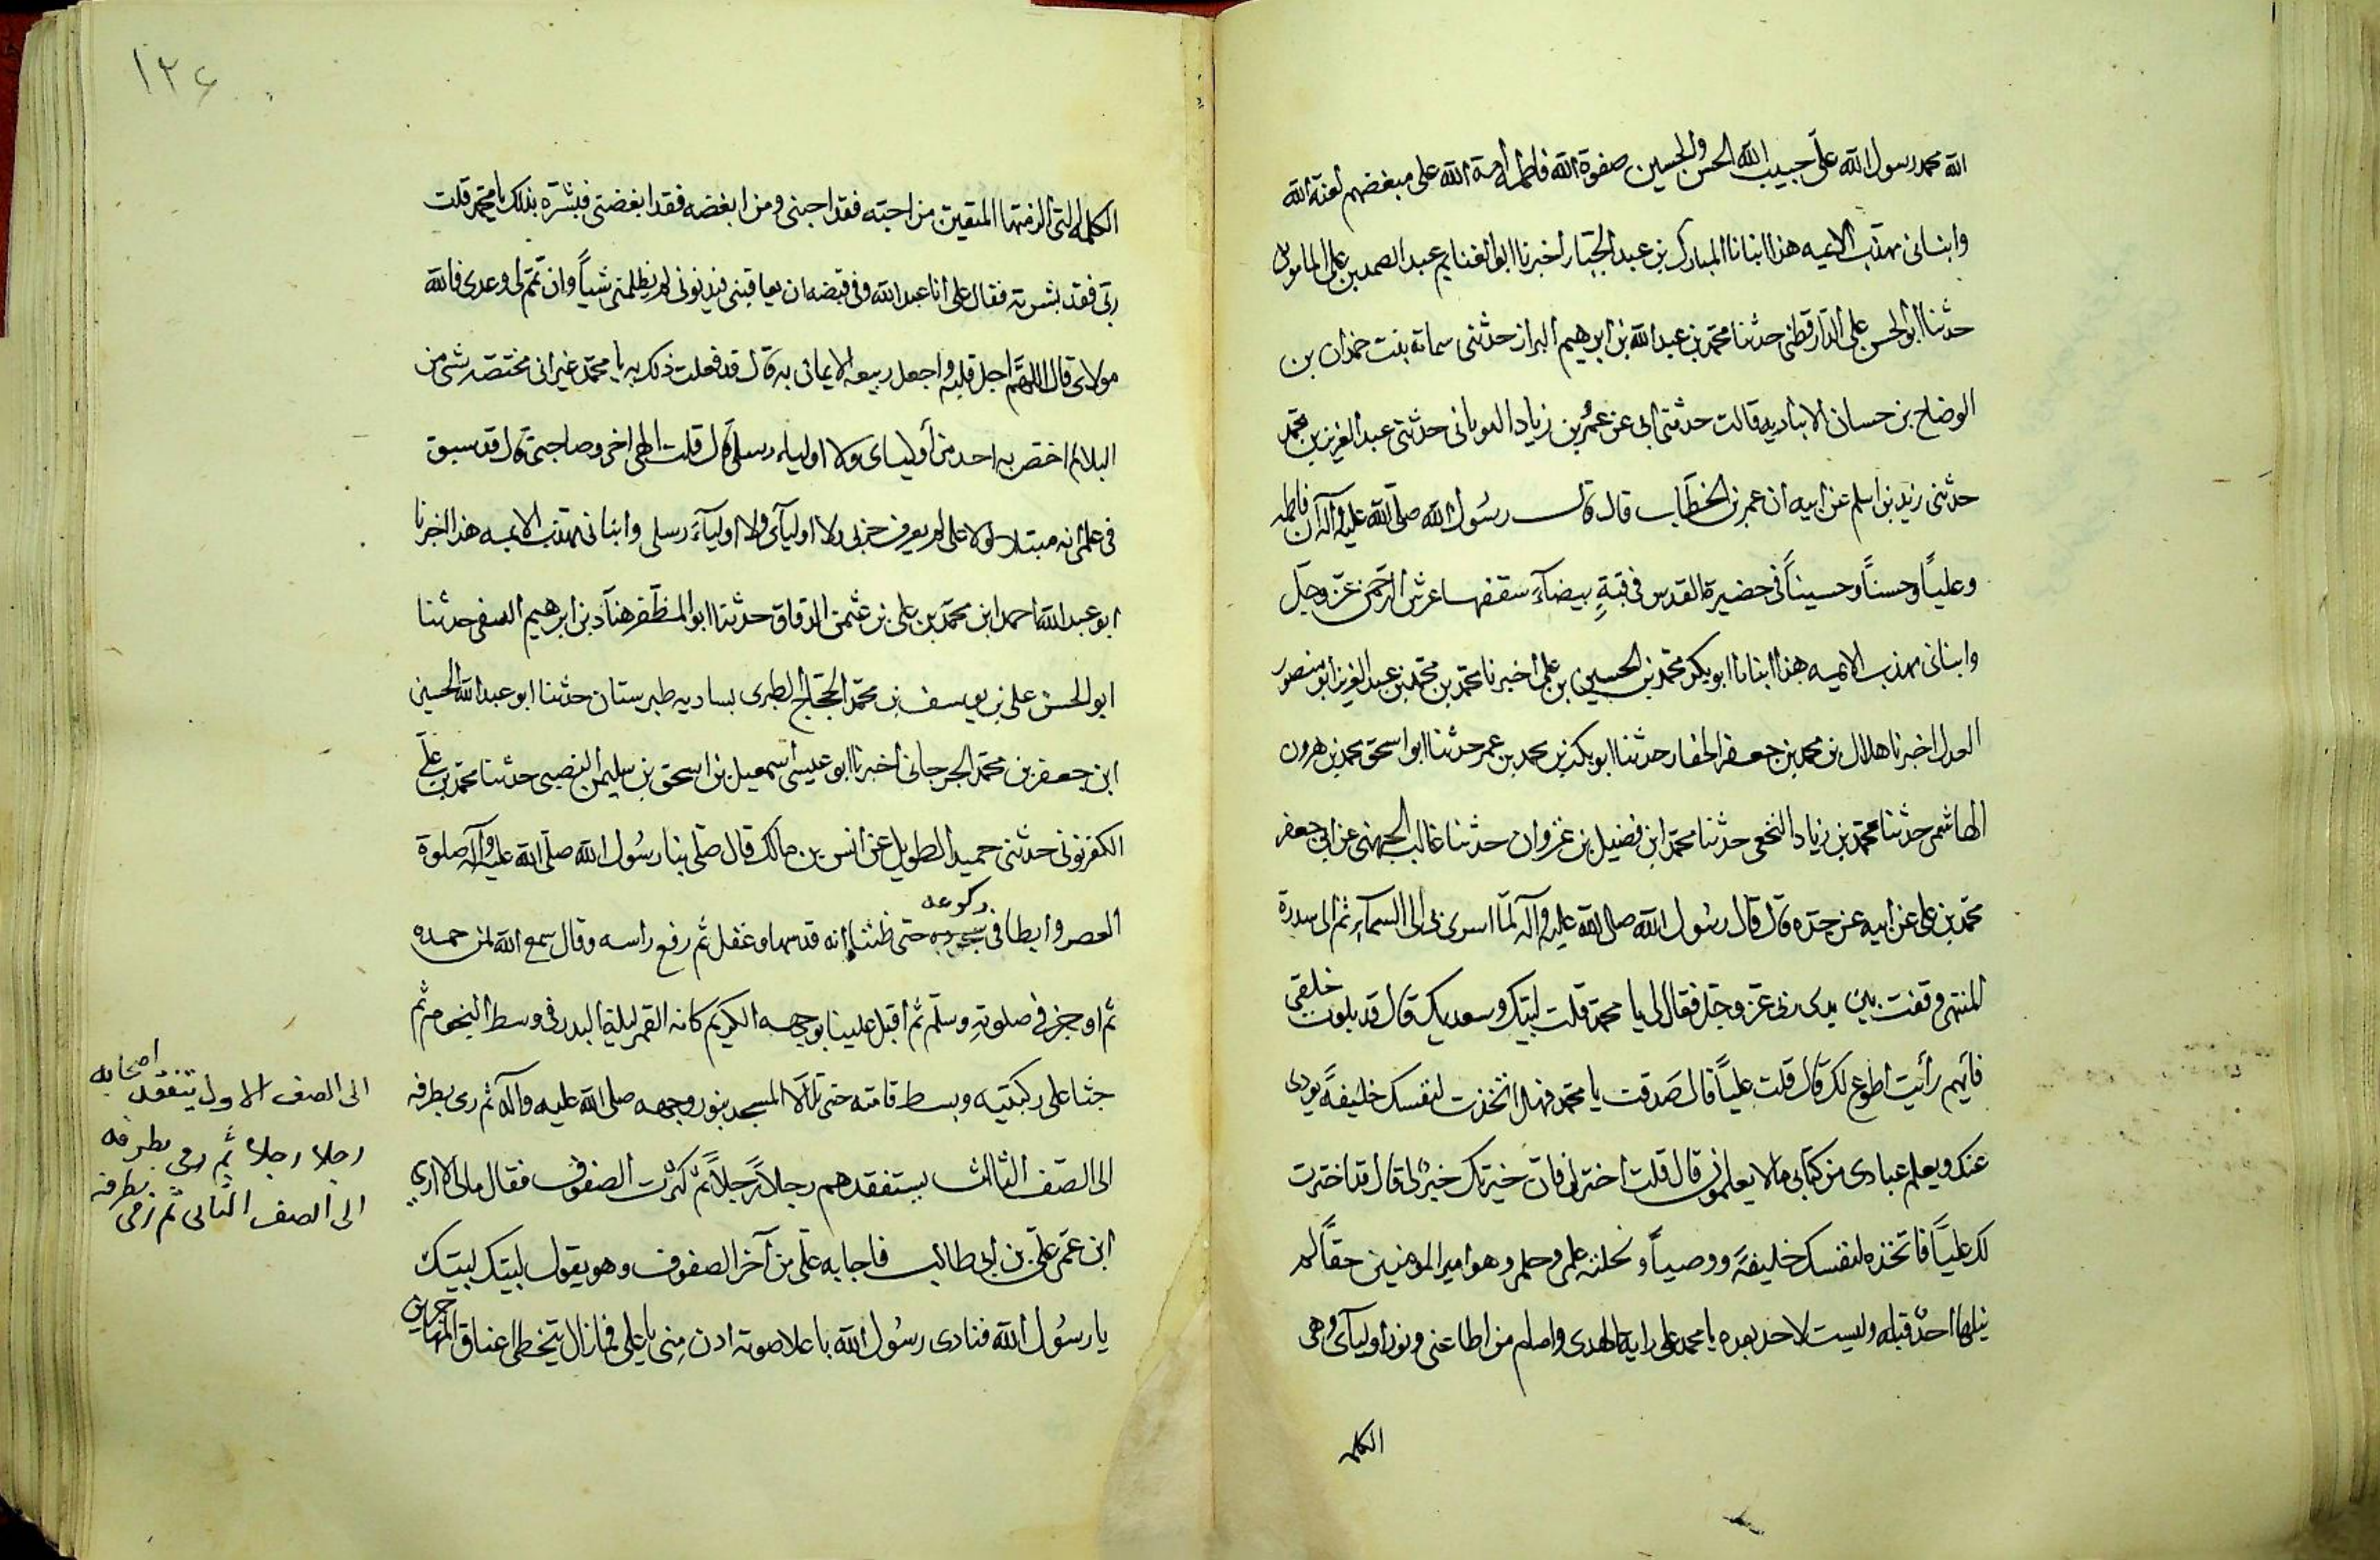 الله محمد رسول الله علي حبيب الله الحسن والحسين صفوة الله فاطمه امة الله على مبغضهم لعنة الله
وانبانى مهذب الايمه هذا انبانا المبارك بن عبد الجبار اخبرنا ابوالغنايم عبد الصمد بن على المامون
حدثنا ابوالحسن على الدارقطنى حدثنا محمد بن عبد الله بن ابرهيم البزاز حدثتنى سمانه بنت حمدان بن
الوضاح بن حسان الانباديه قالت حدثنى ابى عن عمر بن زياد اليونانى حدثنى عبد العزيز بن محمد
حدثنى زيد بن اسلم عن ابيه ان عمر بن الخطاب قال قال رسول الله صلى الله عليه وآله ان فاطمه
وعلياً وحسناً وحسيناً فى حضيرة القدس فى قبةٍ بيضآءِ سقفها عرش الرحمن عز وجل
وانبانى مهذب الايمه هذا انبانا ابوبكر محمد بن الحسين بن على اخبرنا محمد بن محمد بن عبد العزيز ابو منصور
العدل اخبرنا هلال بن محمد بن جعفر الحفار حدثنا ابوبكر بن محمد بن عمر حدثنا ابو اسحق محمد بن هرون
الهاشمى حدثنا محمد بن زياد النخعى حدثنا محمد ابن فضيل بن غزوان حدثنا غالب الجهنى عن ابى جعفر
محمد بن على عن ابيه عن جده قال قال رسول الله صلى الله عليه وآله لمّا اسرى بى الى السمآءِ ثم الى سدرة
المنتهى وقفت بين يدى ربى عز وجل فقال لى يا محمد قلت لبيك وسعديك قال قد بلوت خلقى
فأيهم رأيت اطوع لك قال قلت علياً قال صَدقت يا محمد فهل اتخذت لنفسك خليفةً يودى
عنك ويعلم عبادى من كتابى مالا يعلمون قال قلت اختر لى فان خيرتك خير لى قال قد اخترت
لك علياً فاتخذه لنفسك خليفةً ووصياً ونحلته علمى وحلمى وهو امير المومنين حقاً لم
ينلها احدٌ قبله وليست لاحد بعده يا محمد على راية الهدى وامام من اطاعنى ونور اوليآى وهى
الكلمه
١٢٦
الكلمه التى الزمتها المتقين من احبه فقد احبنى ومن ابغضه فقد ابغضنى فبشره بذلك يا محمد قلت
ربى فقد بشرته فقال على انا عبد الله وفى قبضه ان يعاقبنى فبذنوبى لم يظلمنى شياً وان تمم لى وعدى فالله
مولاى قال اللهم اجل قلبه واجعل ربيعه الايمان به قال قد فعلت ذلك به يا محمد غير انى مختصه بشى من
البلا لم اختص به احد من أوليائى ولا اولياء رسلى قال قلت الهى اخى وصاحبى قال قد سبق
فى علمى انه مبتلا لولا على لم يعرف حزبى ولا اوليآى ولا اوليآءَ رسلى وانبانى مهذب الايمه هذا اخبرنا
ابو عبد الله احمد ابن محمد بن على بن عثمن الدقاق حدثنا ابو المظفر هنآد بن ابرهيم النسفى حدثنا
ابوالحسن على بن يوسف بن محمد الحجاج الطبرى بساريه طبرستان حدثنا ابو عبد الله الحسين
ابن جعفر بن محمد الجرجانى اخبرنا ابو عيسى اسمعيل بن اسحق بن سليمن النصيبى حدثنا محمد بن علي
الكفرتونى حدثنى حميد الطويل عن انس بن مالك قال صلى بنا رسُول الله صلى الله عليه وآله صلوة
العصر وابطا فى ركوعه حتى ظننا انه قد سها وغفل ثم رفع راسه وقال سمع الله لمن حمده
ثم اوجز فى صلوته وسلم ثم اقبل علينا بوجهه الكريم كانه القمر ليلة البدر فى وسط النجوم ثم
جثا على ركبتيه وبسط قامته حتى تلألا المسجد بنور وجهه صلى الله عليه وآله ثم رمى بطرفه
الى الصف الاول يتفقد اصحابه
رجلا رجلا ثم رمى بطرفه
الى الصف الثانى ثم رمى بطرفه
الى الصف الثالث يستفقدهم رجلاً رَجلاً ثم كثرت الصفوف فقال مالى لا ارى
ابن عمى علي بن ابى طالب فاجابه على من آخر الصفوف وهو يقول لبيك لبيك
يا رسُول الله فنادى رسُول الله باعلا صوته ادن مِنى يا على فما زال يتخطى اعناق المهاجرين